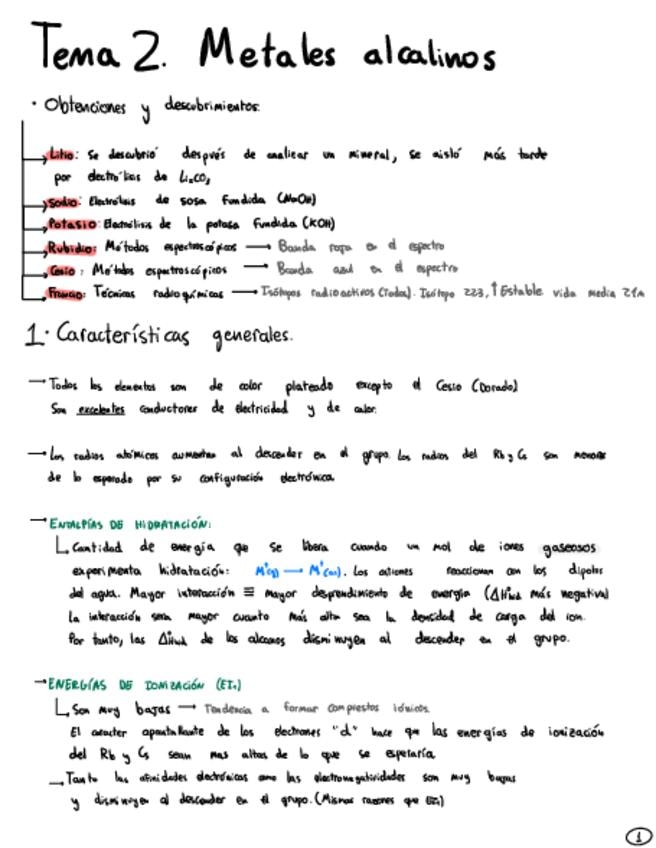 Tema 2. Metales alcalinos
· Obtenciones y descubrimientos:
Litio: Se descubrió después de analizar un mineral, se aisló más tarde
por electrólisis de Li₂CO₃
Sodio: Electrólisis de sosa fundida (NaOH)
Potasio: Electrólisis de la potasa fundida (KOH)
Rubidio: Métodos espectroscópicos → Banda roja en el espectro
Cesio: Métodos espectroscópicos → Banda azul en el espectro
Francio: Técnicas radioquímicas → Isótopos radioactivos (Todos). Isótopo 223, ↑ Estable vida media 21m
1. Características generales.
→ Todos los elementos son de color plateado excepto el Cesio (Dorado)
Son excelentes conductores de electricidad y de calor.
→ Los radios atómicos aumentan al descender en el grupo. Los radios del Rb y Cs son menores
de lo esperado por su configuración electrónica.
→ ENTALPÍAS DE HIDRATACIÓN:
Cantidad de energía que se libera cuando un mol de iones gaseosos
experimenta hidratación: M⁺(g) → M⁺(ac). Los cationes reaccionan con los dipolos
del agua. Mayor interacción ≡ mayor desprendimiento de energía (ΔHhid más negativa)
La interacción será mayor cuanto más alta sea la densidad de carga del ion.
Por tanto, las ΔHhid de los alcalinos disminuyen al descender en el grupo.
→ ENERGÍAS DE IONIZACIÓN (EI₁)
Son muy bajas → Tendencia a formar compuestos iónicos.
El caracter apantallante de los electrones "d" hace que las energías de ionización
del Rb y Cs sean mas altas de lo que se esperaría
→ Tanto las afinidades electrónicas como las electronegatividades son muy bajas
y disminuyen al descender en el grupo. (Mismas razones que EI₁)
1